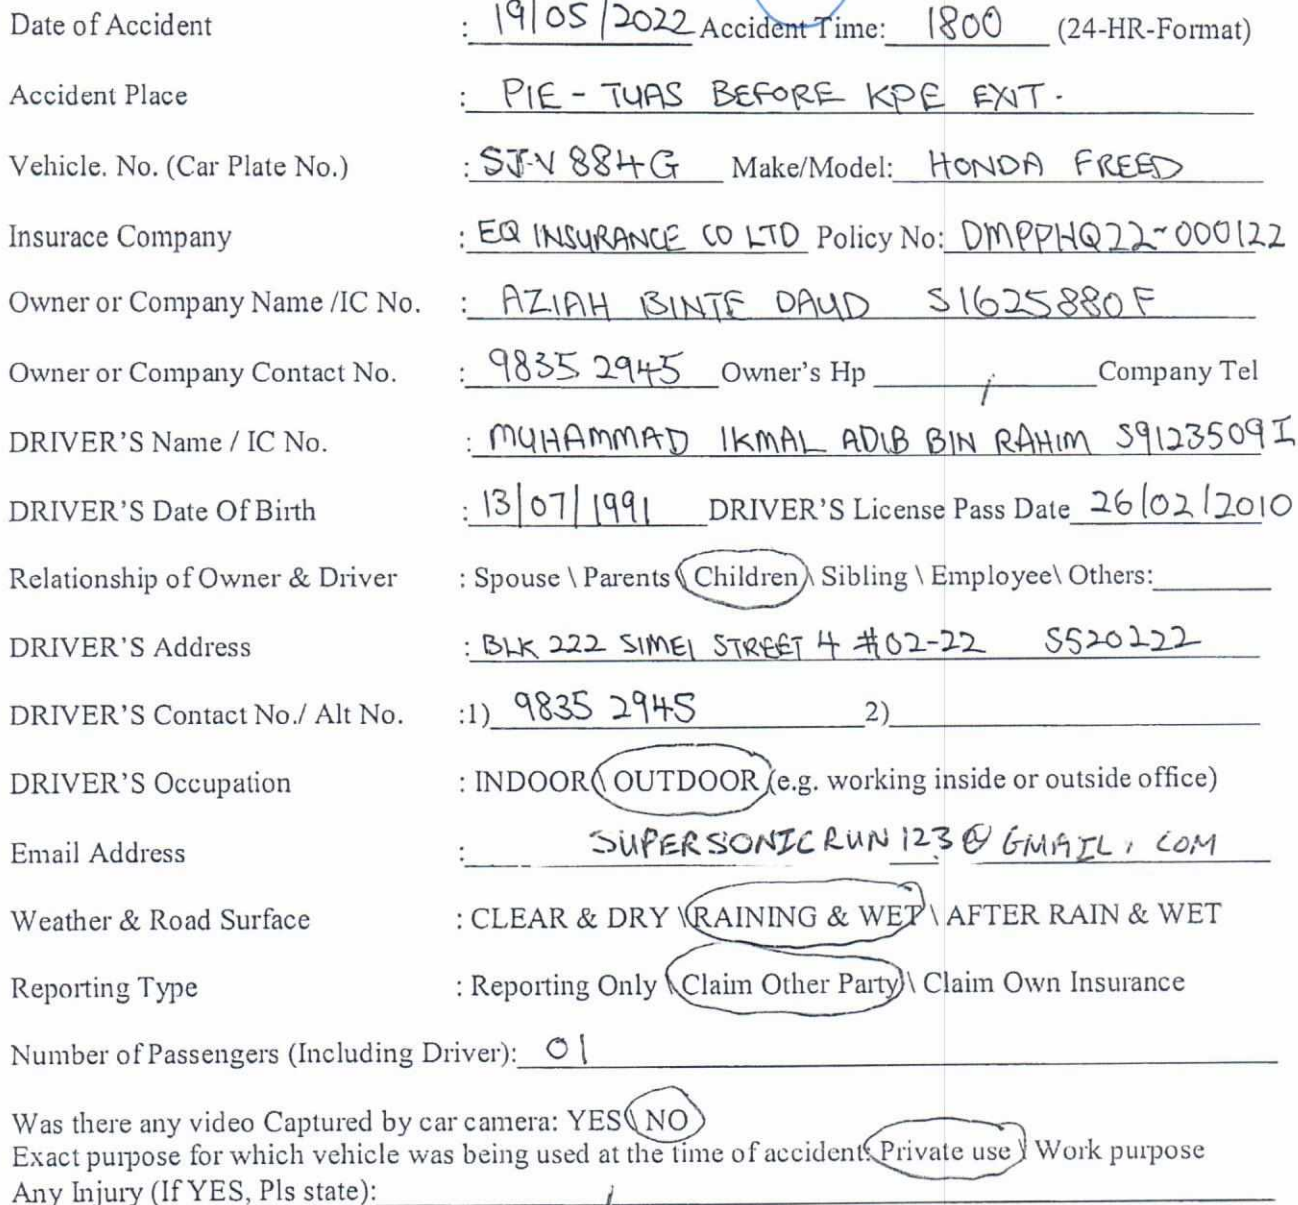 Date of Accident : 19/05/2022 Accident Time: 1800 (24-HR-Format)
Accident Place : PIE - TUAS BEFORE KPE EXIT.
Vehicle. No. (Car Plate No.) : SJV 884G Make/Model: HONDA FREED
Insurace Company : EQ INSURANCE CO LTD Policy No: DMPPHQ22-000122
Owner or Company Name /IC No. : AZIAH BINTE DAUD S1625880F
Owner or Company Contact No. : 9835 2945 Owner's Hp / Company Tel
DRIVER'S Name / IC No. : MUHAMMAD IKMAL ADIB BIN RAHIM S9123509I
DRIVER'S Date Of Birth : 13/07/1991 DRIVER'S License Pass Date 26/02/2010
Relationship of Owner & Driver : Spouse \ Parents \ Children \ Sibling \ Employee\ Others:
DRIVER'S Address : BLK 222 SIMEI STREET 4 #02-22 S520222
DRIVER'S Contact No./ Alt No. :1) 9835 2945 2)
DRIVER'S Occupation : INDOOR \ OUTDOOR (e.g. working inside or outside office)
Email Address : SUPERSONICRUN123@GMAIL.COM
Weather & Road Surface : CLEAR & DRY \ RAINING & WET \ AFTER RAIN & WET
Reporting Type : Reporting Only \ Claim Other Party \ Claim Own Insurance
Number of Passengers (Including Driver): 01
Was there any video Captured by car camera: YES \ NO
Exact purpose for which vehicle was being used at the time of accident: Private use \ Work purpose
Any Injury (If YES, Pls state): /